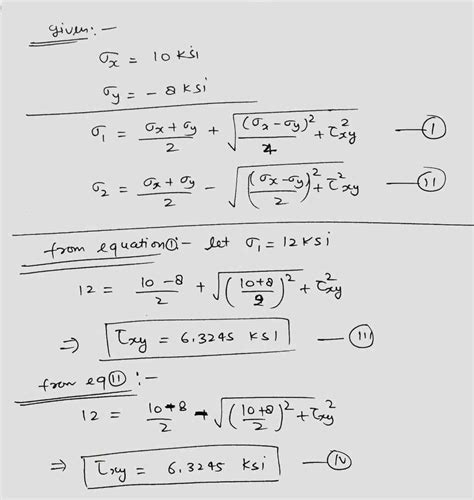 given:-
σx = 10 ksi
σy = - 8 ksi
σ1 = (σx + σy)/2 + √((σx - σy)²/4 + τ²xy) — (I)
σ2 = (σx + σy)/2 - √(((σx - σy)/2)² + τ²xy) — (II)
from equation (I):- let σ1 = 12 ksi
12 = (10 - 8)/2 + √(((10+8)/2)² + τ²xy)
⇒ τxy = 6.3245 ksi — (III)
from eq (II) :-
12 = (10+8)/2 + √(((10+8)/2)² + τ²xy)
⇒ τxy = 6.3245 ksi — (IV)